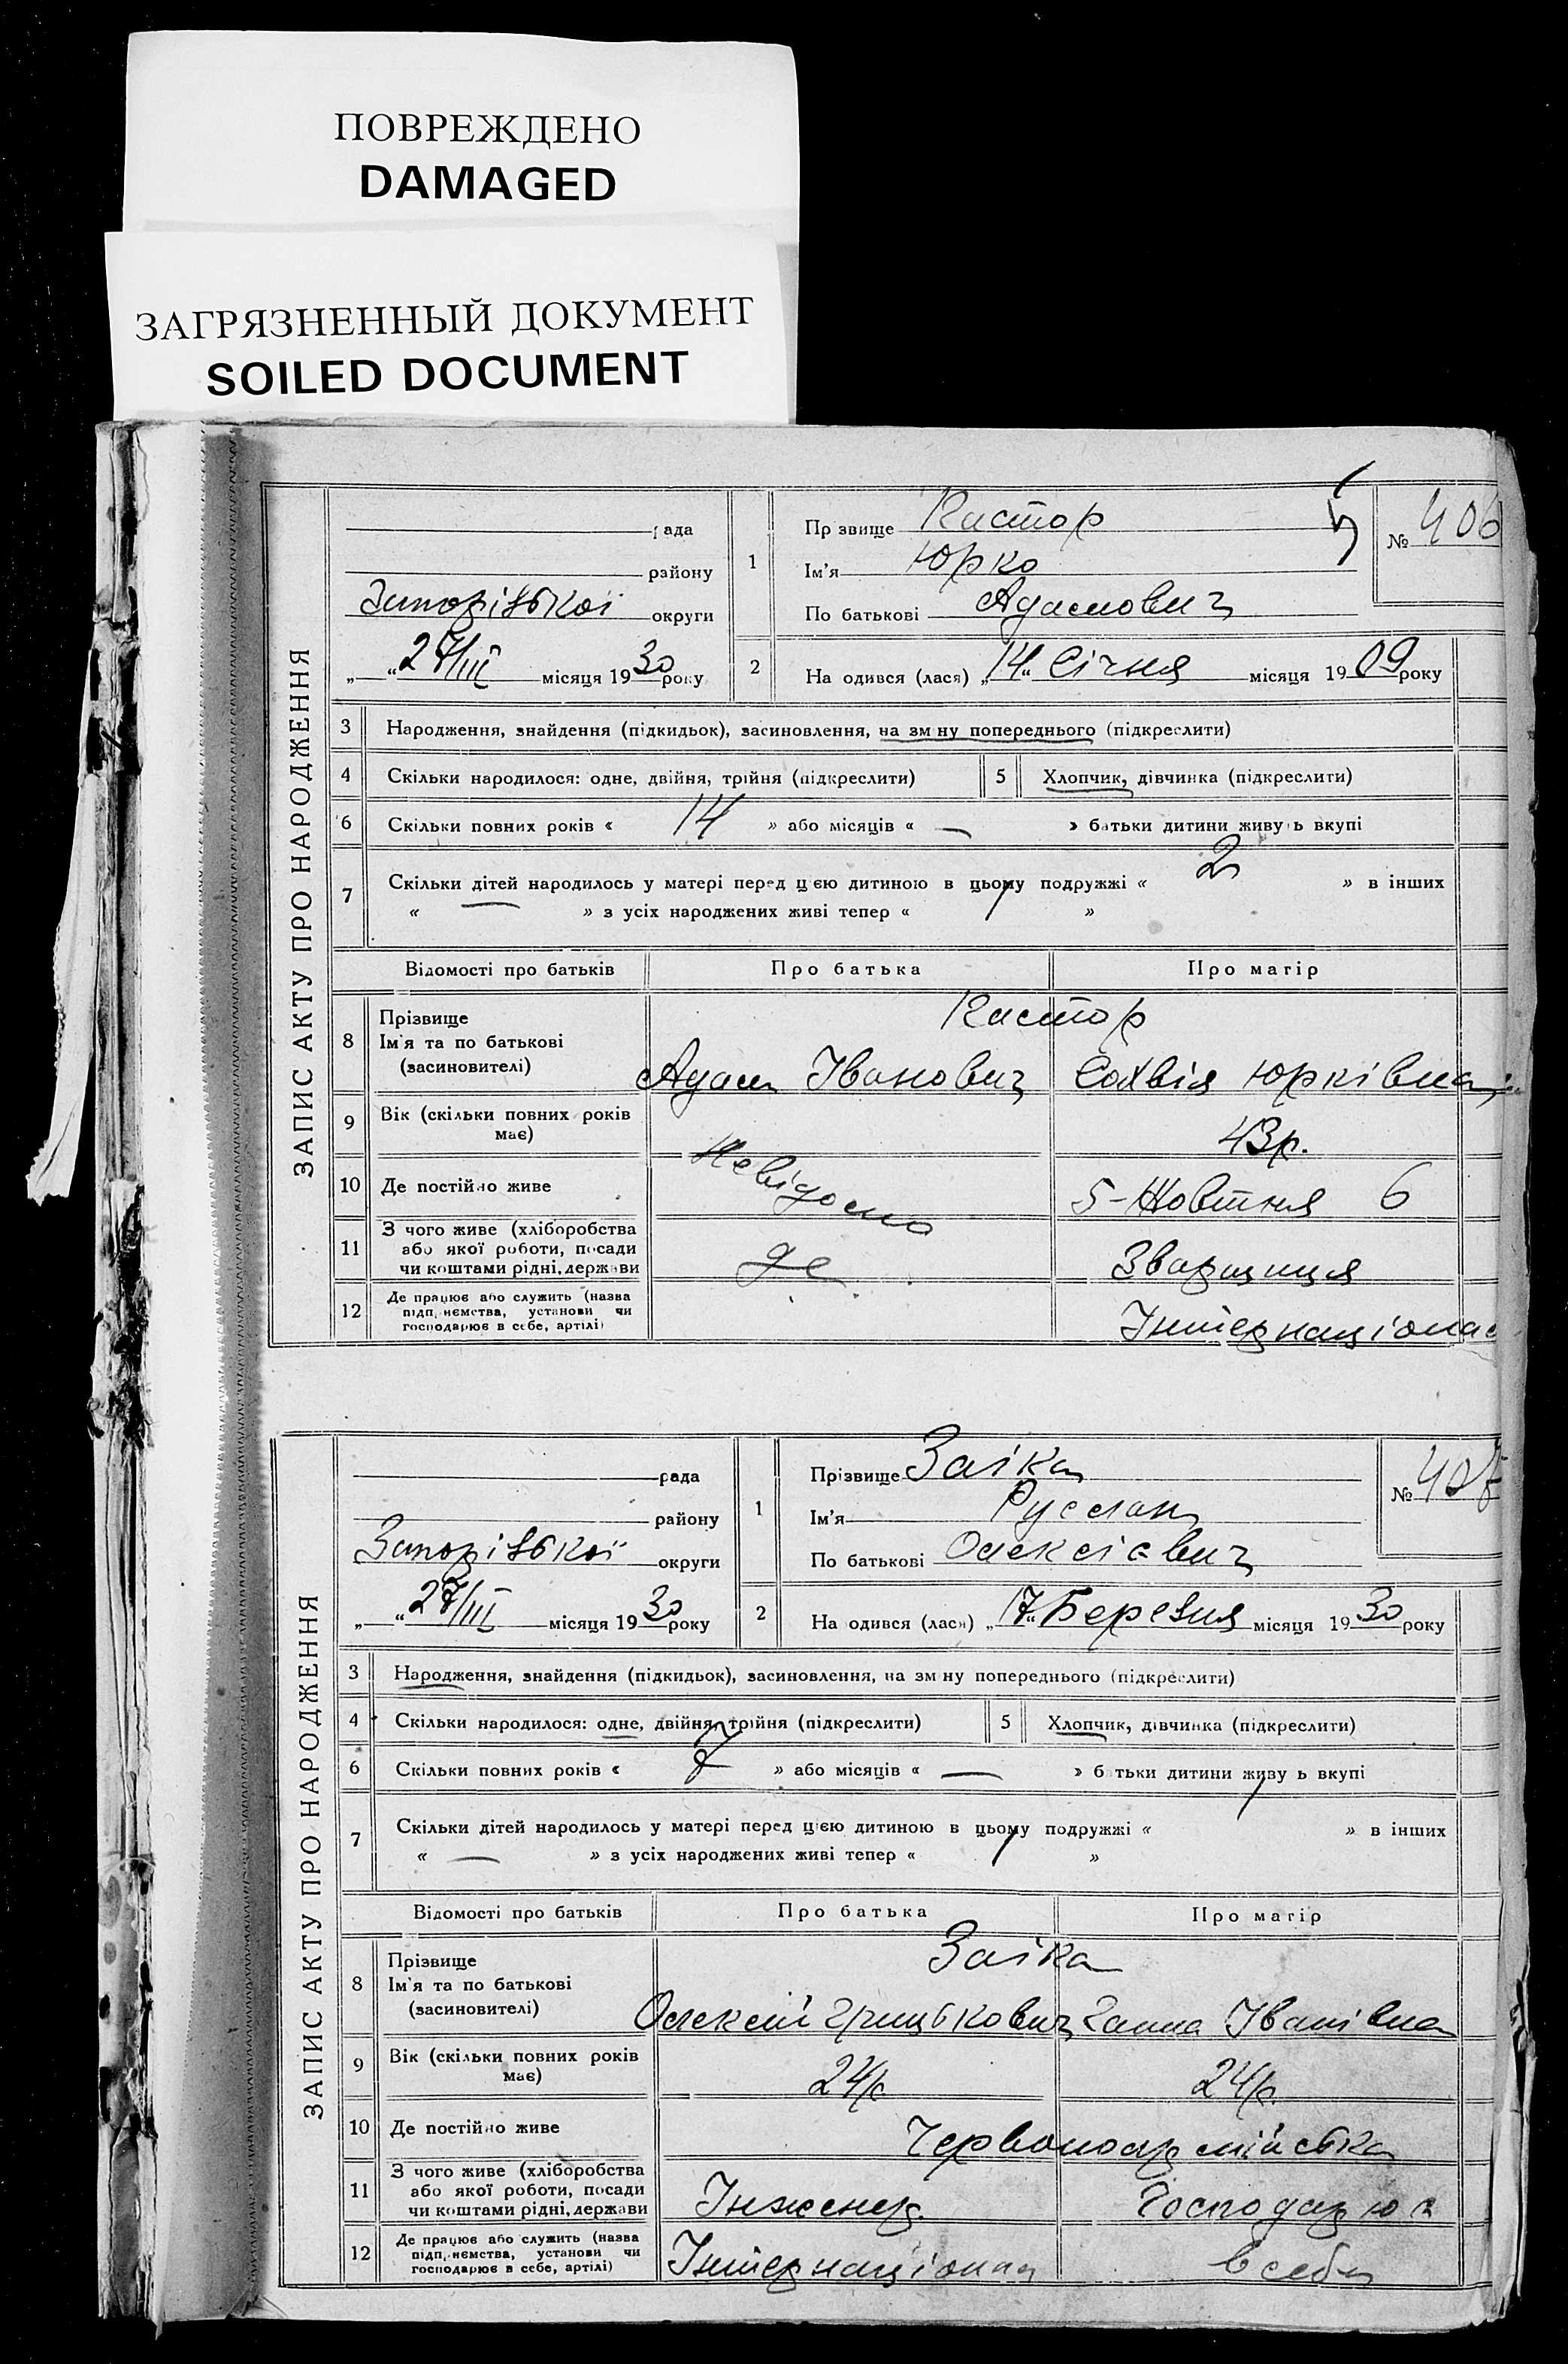 ПОВРЕЖДЕНО
DAMAGED
ЗАГРЯЗНЕННЫЙ ДОКУМЕНТ
SOILED DOCUMENT
ЗАПИС АКТУ ПРО НАРОДЖЕННЯ
рада
району
Запорізької округи
„ “ 27/III місяця 1930 року
1
Прзвище Кастор
Ім'я Юрко
По батькові Адамович
№ 406
2
На одився (лася) „14“ Січня місяця 1909 року
3 Народження, знайдення (підкидьок), засиновлення, на зм ну попереднього (підкреслити)
4 Скільки народилося: одне, двійня, трійня (підкреслити) 5 Хлопчик, дівчинка (підкреслити)
6 Скільки повних років « 14 » або місяців « — » батьки дитини живу ь вкупі
7 Скільки дітей народилось у матері перед цією дитиною в цьому подружжі « 2 » в інших
« — » з усіх народжених живі тепер « 1 »
Відомості про батьків Про батька Про матір
8 Прізвище
Ім'я та по батькові
(засновителі)
Кастор
Адам Іванович Софвія Юрківна
9 Вік (скільки повних років має) 43р.
10 Де постійно живе 5-Жовтня 6
Невідомо
де
11 З чого живе (хліборобства
або якої роботи, посади
чи коштами рідні, держави
Зварщиця
12 Де працює або служить (назва
підприємства, установи чи
господарює в себе, артілі)
Інтернаціонал
ЗАПИС АКТУ ПРО НАРОДЖЕННЯ
рада
району
Запорізької округи
„ “ 27/III місяця 1930 року
1
Прізвище Заіка
Ім'я Руслан
По батькові Олексієвич
№ 407
2
На одився (лася) „17“ Березня місяця 1930 року
3 Народження, знайдення (підкидьок), засиновлення, на зм ну попереднього (підкреслити)
4 Скільки народилося: одне, двійня, трійня (підкреслити) 5 Хлопчик, дівчинка (підкреслити)
6 Скільки повних років « 7 » або місяців « — » б тьки дитини живу ь вкупі
7 Скільки дітей народилось у матері перед цією дитиною в цьому подружжі « 1 » в інших
« — » з усіх народжених живі тепер « 1 »
Відомості про батьків Про батька Про матір
8 Прізвище
Ім'я та по батькові
(засиновителі)
Заіка
Олексій Грицькович Ганна Іванівна
9 Вік (скільки повних років має) 24р 24р.
10 Де постійно живе Червоноармійська
11 З чого живе (хліборобства
або якої роботи, посади
чи коштами рідні, держави
Інженер. Господарює
12 Де працює або служить (назва
підприємства, установи чи
господарює в себе, артілі)
Інтернаціонал в себе